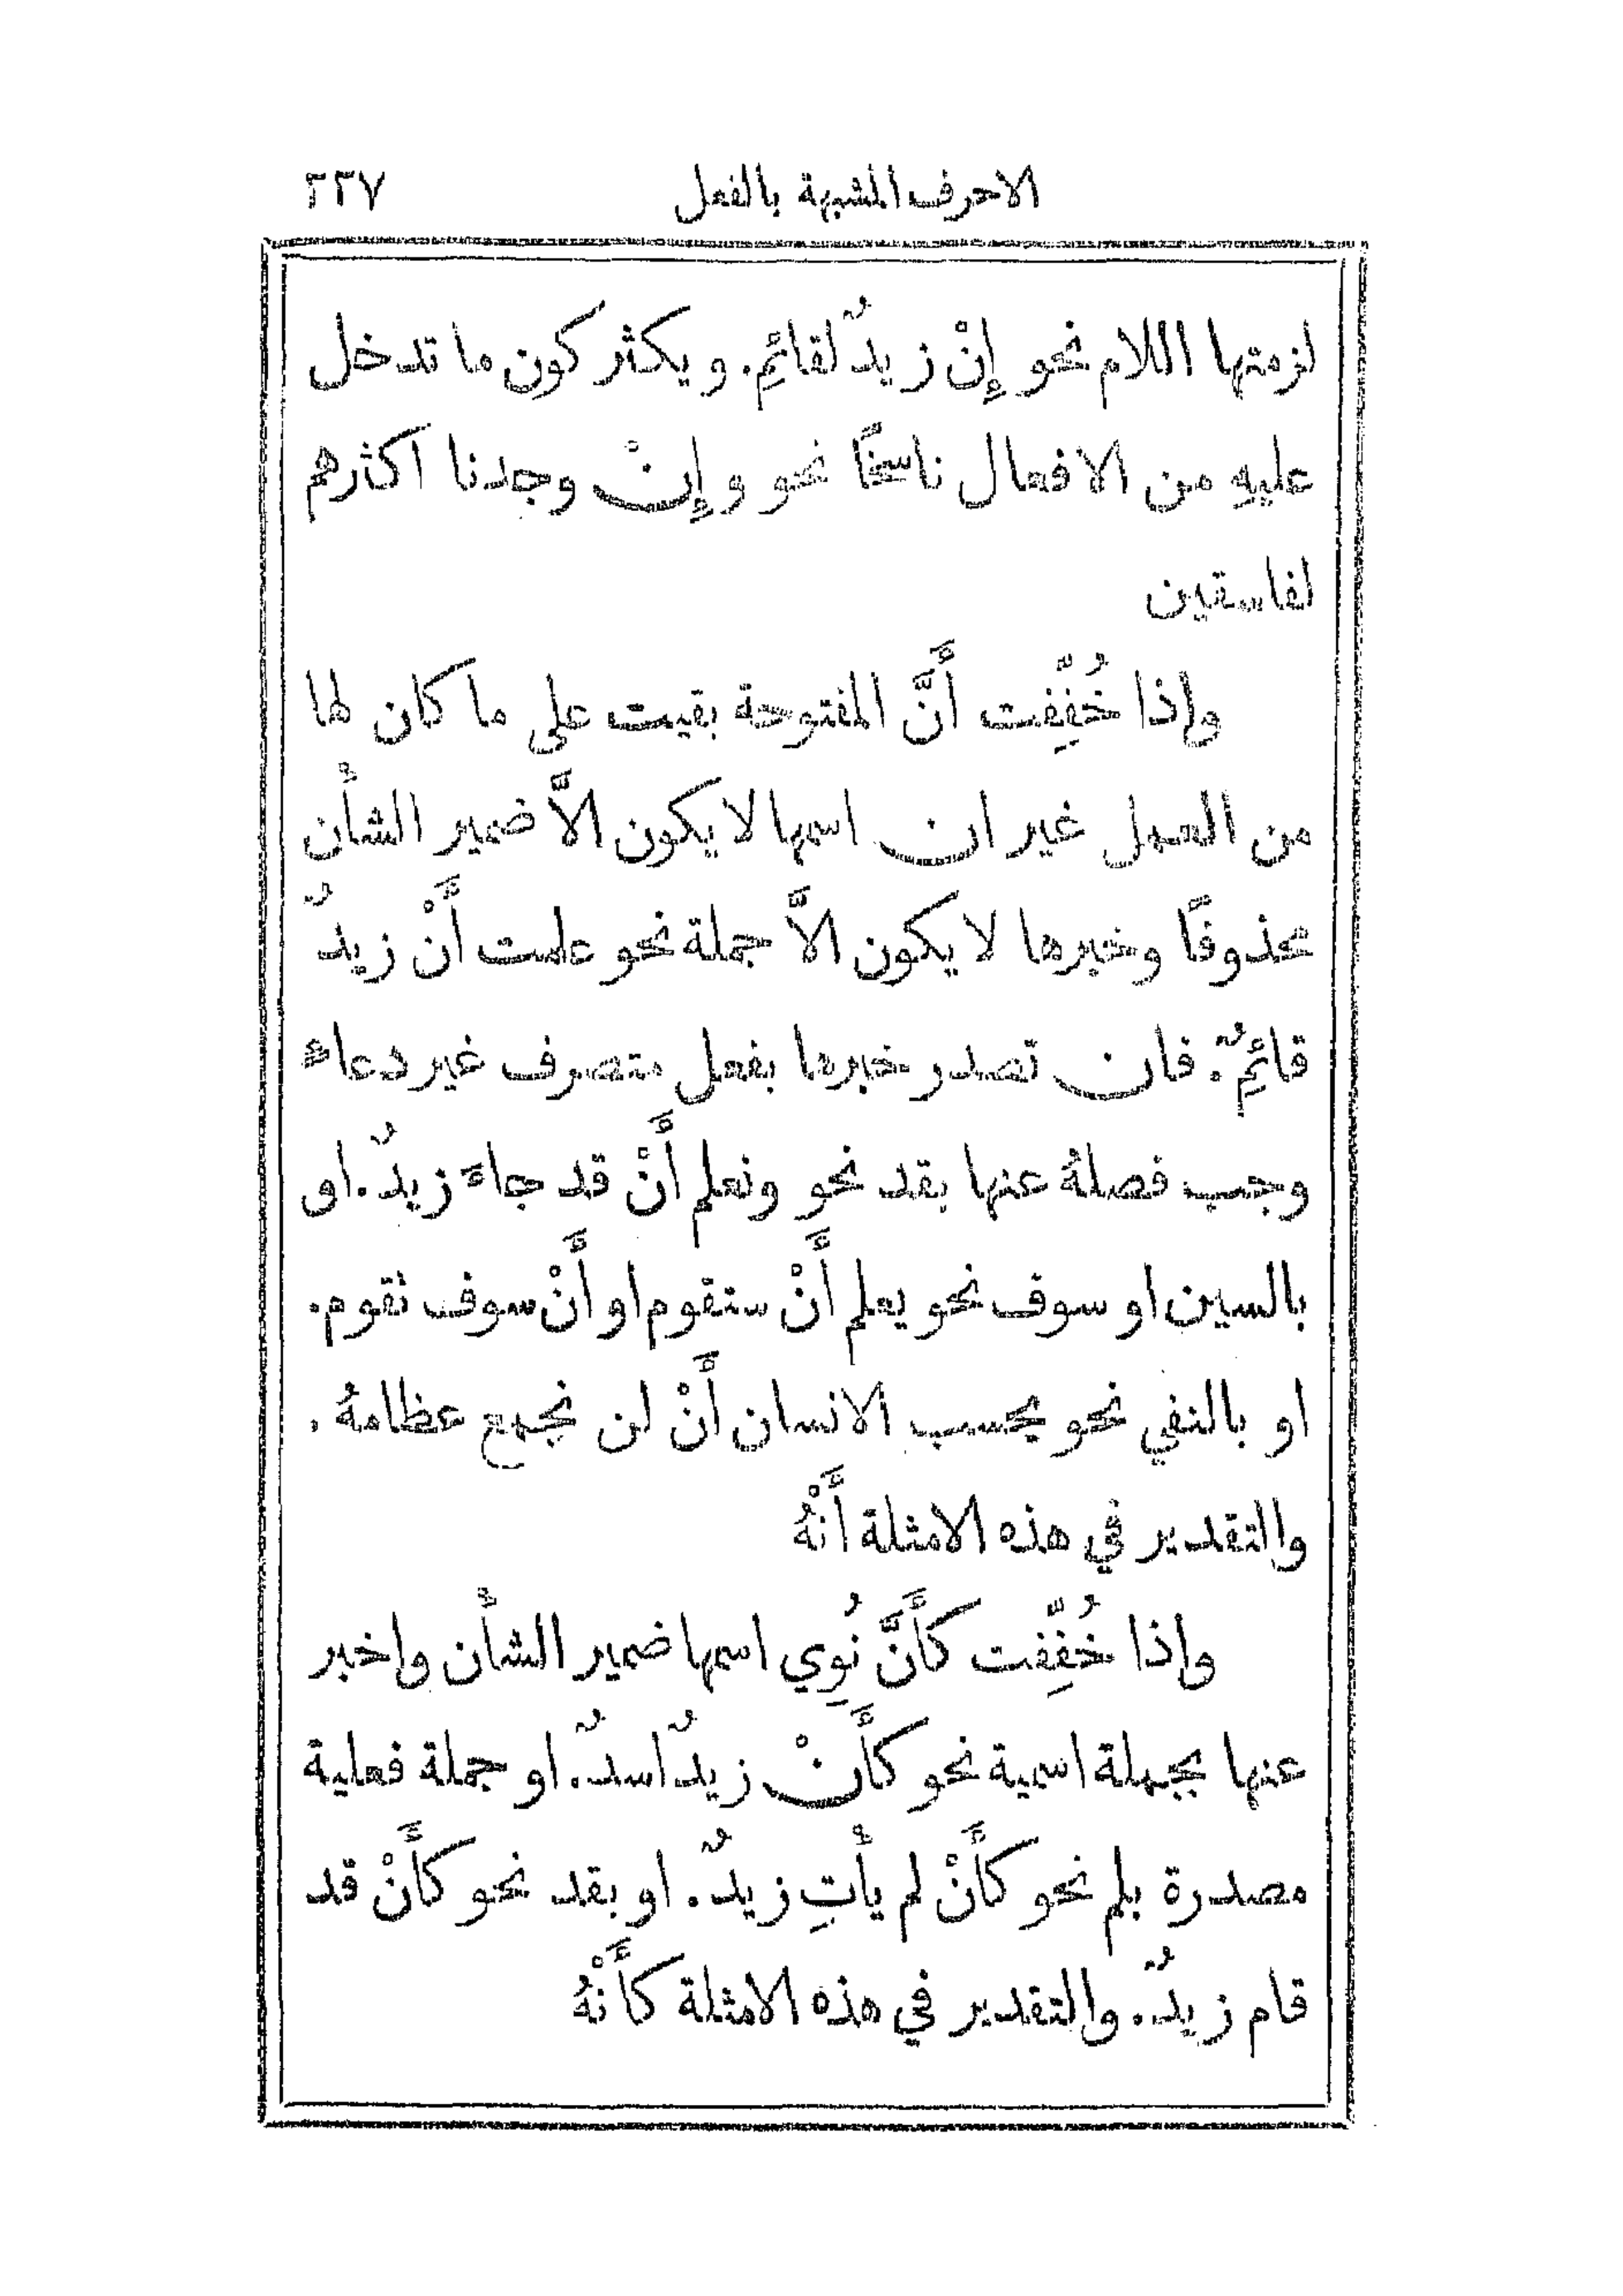 الاحرف المشبهة بالفعل ٢٢٧
لزمتها اللام نحو إِنْ زيدٌ لقائِم. ويكثر كون ما تدخل
عليهِ من الافعال ناسخًا نحو وإِنْ وجدنا اكثرهم
لفاسقين
واذا خُفِّفت أَنَّ المفتوحة بقيت على ما كان لها
من العمل غير ان اسمها لا يكون الَّا ضمير الشأْن
محذوفًا وخبرها لا يكون الَّا جملة نحو علمت أَنْ زيدٌ
قائِمٌ. فان تصدر خبرها بفعل متصرف غير دعاءً
وجب فصلهُ عنها بقد نحو ونعلم أَنْ قد جاءَ زيدٌ. او
بالسين او سوف نحو يعلم أَنْ ستقوم او أَنْ سوف نقوم.
او بالنفي نحو يحسب الانسان أَنْ لن نجمع عظامهُ.
والتقدير في هذه الامثلة أَنْهُ
واذا خُفِّفت كأَنَّ نُوِي اسمها ضمير الشأْن واخبر
عنها بجملة اسمية نحو كأَنْ زيدٌ اسدٌ. او جملة فعلية
مصدرة بلم نحو كأَنْ لم يأْتِ زيدٌ. او بقد نحو كأَنْ قد
قام زيدٌ. والتقدير في هذه الامثلة كأَنْهُ